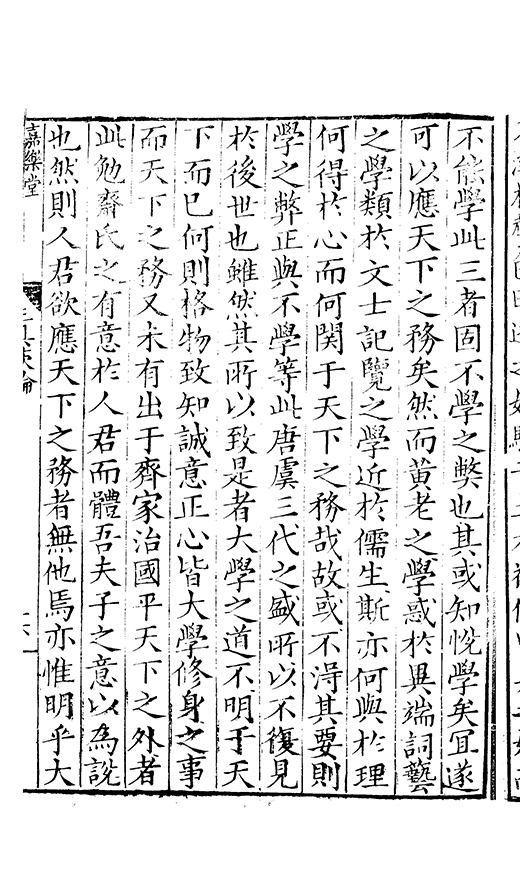 不能學此三者固不學之弊也其或知恱學矣冝遂
可以應天下之務矣然而黃老之學惑於異端詞藝
之學類於文士記覽之學近於儒生斯亦何與於理
何得於心而何関于天下之務哉故或不淂其要則
學之弊正與不學等此唐虞三代之盛所以不復見
於後世也雖然其所以致是者大學之道不明于天
下而已何則格物致知誠意正心皆大學修身之事
而天下之務又未有出于齊家治國平天下之外者
此勉齋氏之有意於人君而體吾夫子之意以為說
也然則人君欲應天下之務者無他焉亦惟明乎大
嘉樂堂